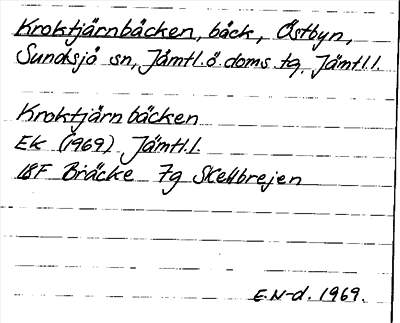 Kroktjärnbäcken, bäck, Östbyn,
Sundsjö sn, Jämtl.ö. doms. tg. Jämtl.l.
Kroktjärnbäcken
EK (1969) Jämtl.l.
18F Bräcke 7g Skettbrejen
E.N-d. 1969.